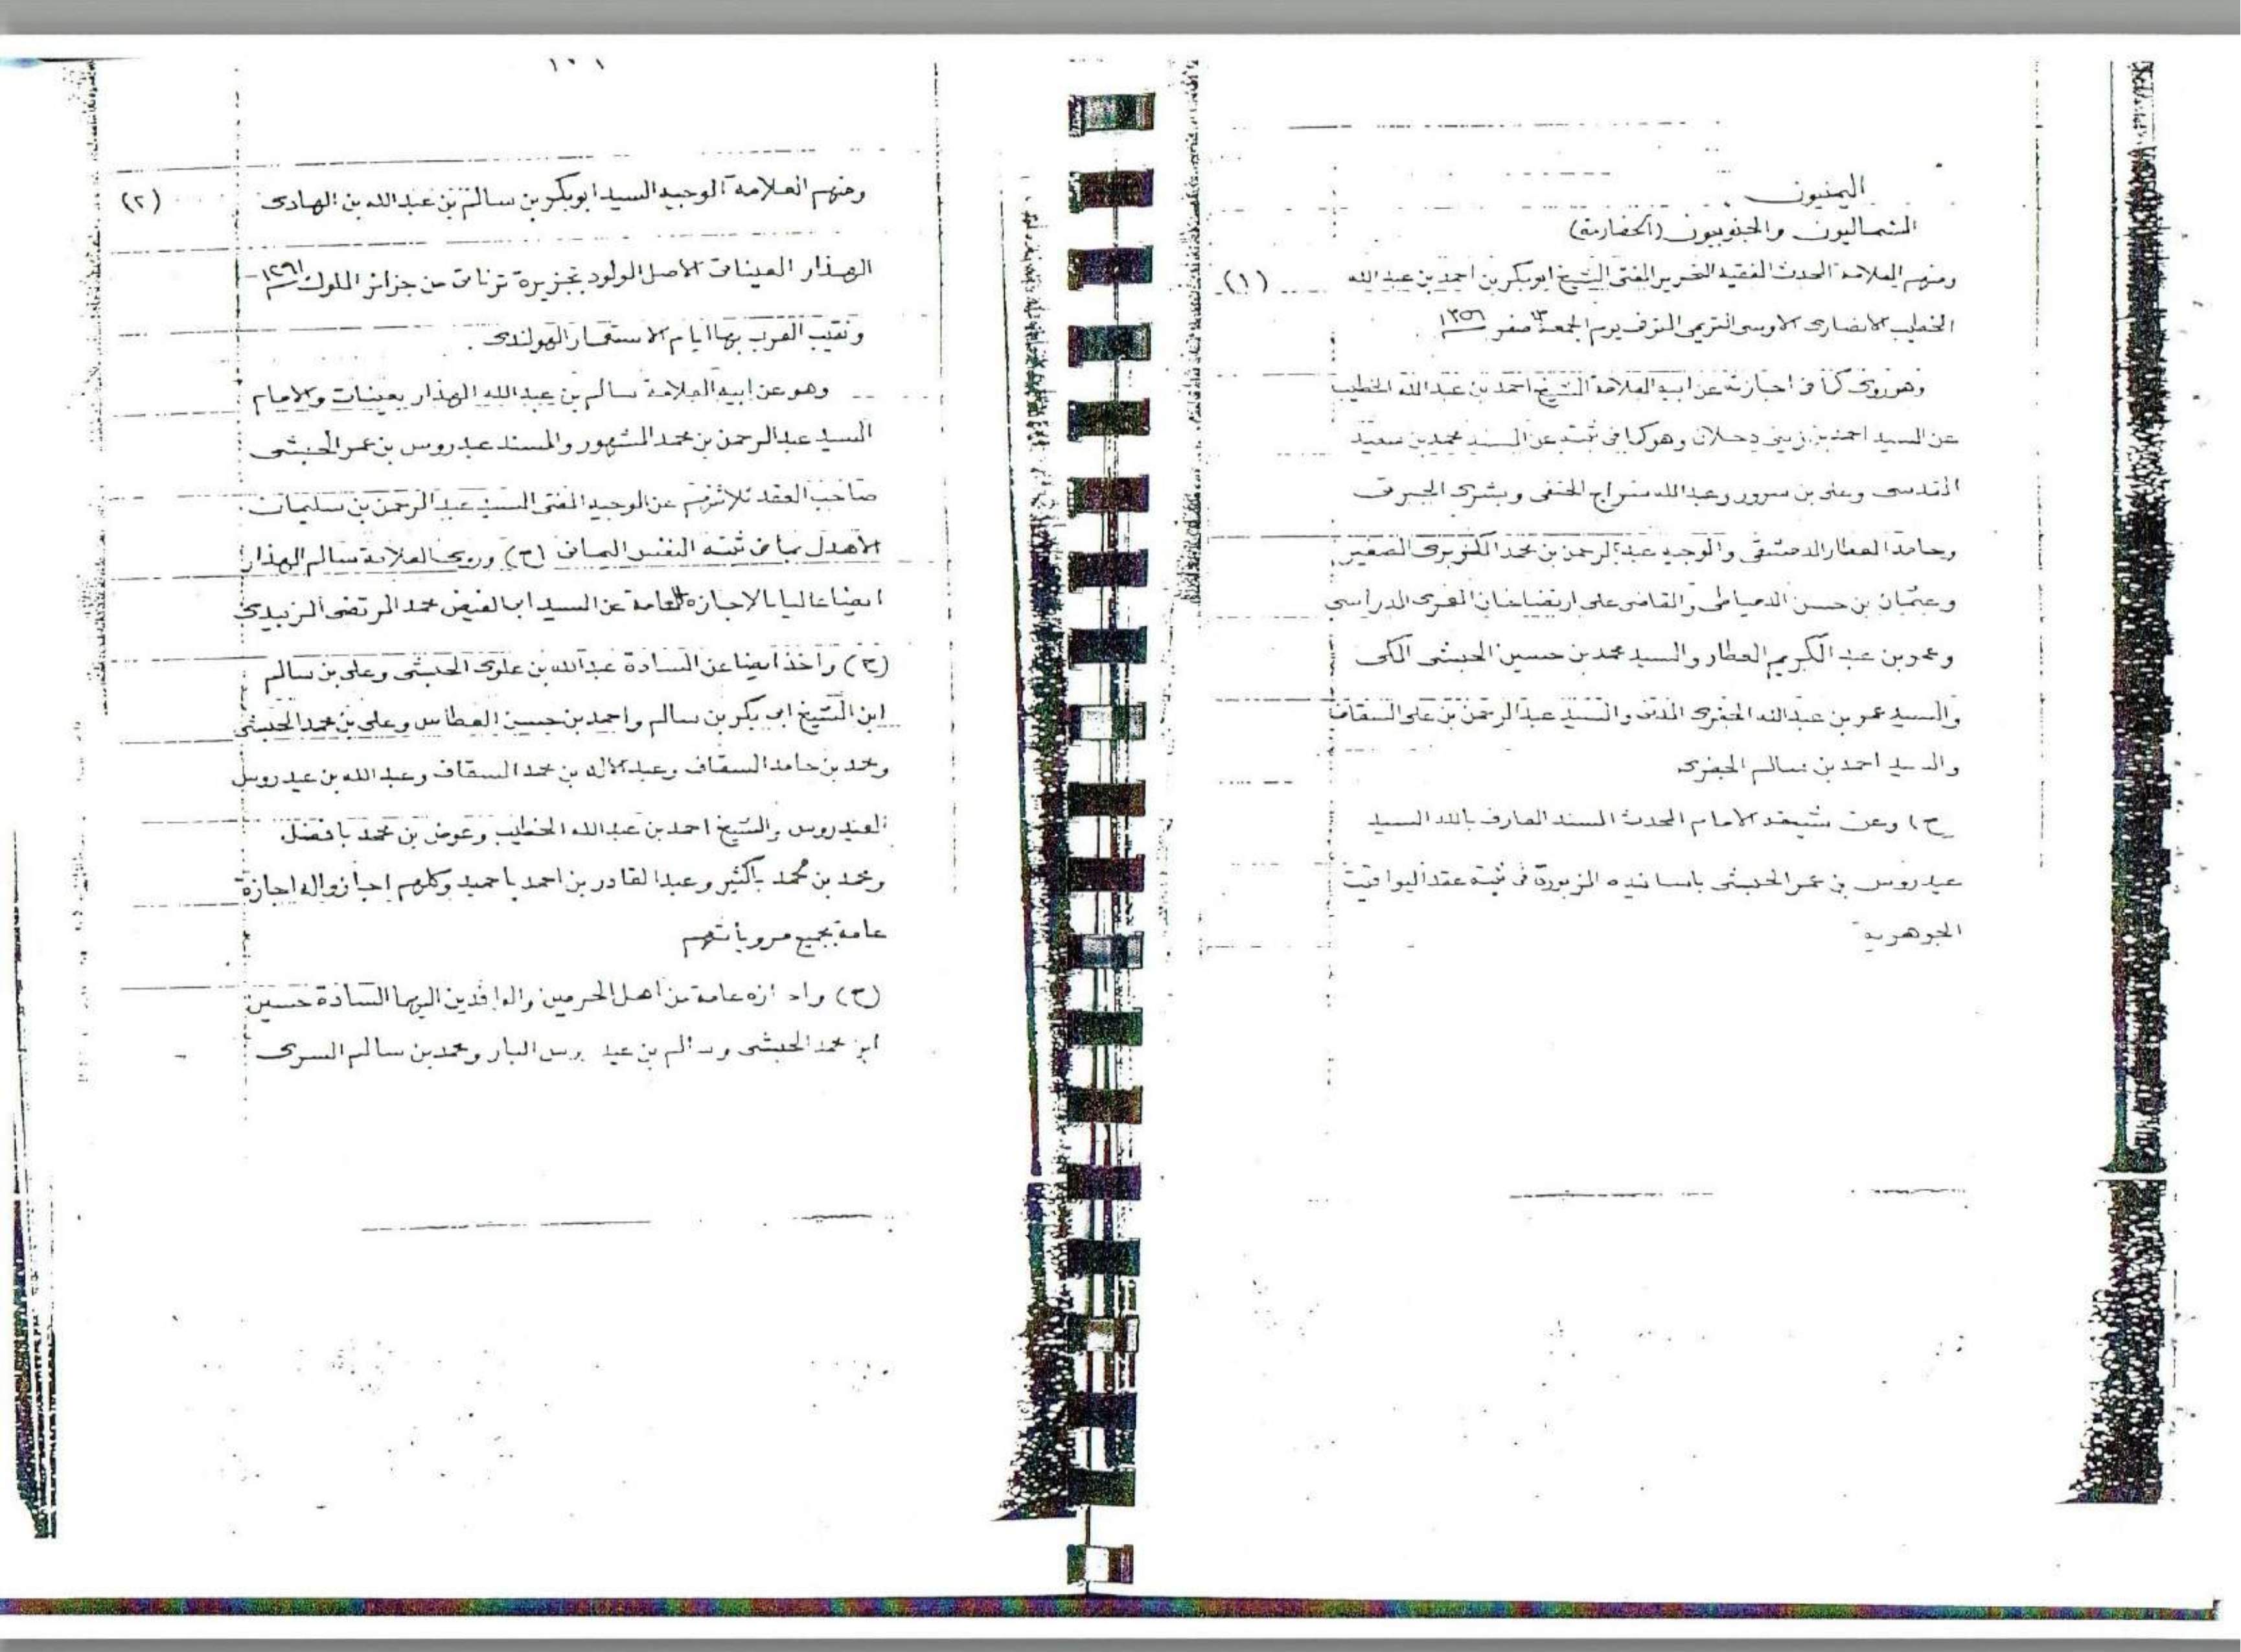 اليمنيون
الشماليون والجنوبيون (الحضارمة)
ومنهم العلامة المحدث الفقيه النحرير المفتى الشيخ ابوبكر بن احمد بن عبد الله (١)
الخطيب الانصارى الاوسى التريمى المتوفى يوم الجمعة ١٣ صفر ١٣٥٦
وهو روى كما فى اجازته عن ابيه العلامة الشيخ احمد بن عبد الله الخطيب
عن السيد احمد بن زينى دحلان وهو كما فى ثبته عن السيد محمد بن سعيد
المقدسى وعلى بن سرور وعبد الله سراج الحنفى وبشرى الجبرتى
وحامد العطار الدمشقى والوجيه عبد الرحمن بن محمد الكزبرى الصغير
وعثمان بن حسن الدمياطى والقاضى على ارتضاخان العمرى المدراسى
وعمر بن عبد الكريم العطار والسيد محمد بن حسين الحبشى المكى
والسيد عمر بن عبد الله الجفرى المدنى والسيد عبد الرحمن بن على السقاف
والسيد احمد بن سالم الجفرى
ح) وعن شيخه الامام المحدث المسند العارف بالله السيد
عيدروس بن عمر الحبشى باسانيده المزبورة فى ثبته عقد اليواقيت
الجوهرية
١٠١
ومنهم العلامة الوجيه السيد ابوبكر بن سالم بن عبد الله بن الهادى (٢)
الهدار العينات الاصل المولود بجزيرة ترنات من جزائر الملوك ١٢٩١
ونقيب العرب بها ايام الاستعمار الهولندى .
وهو عن ابيه العلامة سالم بن عبد الله الهدار بعينات والامام
السيد عبد الرحمن بن محمد المشهور والمسند عيدروس بن عمر الحبشى
صاحب العقد ثلاثتهم عن الوجيه المفتى السيد عبد الرحمن بن سليمان
الاهدل بما فى ثبته النفس اليمانى (ح) وروى العلامة سالم الهدار
ايضا عاليا بالاجازه العامة عن السيد ابى الفيض محمد المرتضى الزبيدى
(ح) واخذ ايضا عن السادة عبد الله بن علوى الحبشى وعلى بن سالم
ابن الشيخ ابى بكر بن سالم واحمد بن حسن العطاس وعلى بن محمد الحبشى
ومحمد بن حامد السقاف وعبد الاله بن محمد السقاف وعبد الله بن عيدروس
العيدروس والشيخ احمد بن عبد الله الخطيب وعوض بن محمد بافضل
ومحمد بن محمد باكثير وعبد القادر بن احمد باحميد وكلهم اجازوا له اجازة
عامة بجميع مروياتهم
(ح) واجازه عامة من اهل الحرمين والوافدين اليهما السادة حسين
ابن محمد الحبشى وسالم بن عيدروس البار ومحمد بن سالم السرى